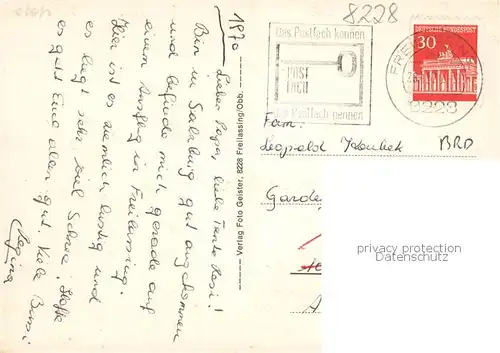 1970
Lieber Papa, liebe Tante Resi!
Bin in Salzburg gut angekommen
und befinde mich gerade auf
einem Ausflug in Freilassing.
Hier ist es ziemlich lustig und
es liegt sehr viel Schnee. Hoffe
es geht Euch allen gut. Viele Bussi
Regina
Verlag Foto Geisler, 8228 Freilassing/Obb.
8228
Das Postfach kennen
POST
FACH
Postfach nennen
DEUTSCHE BUNDESPOST
30
8228
Fam.
Leopold
BRD
privacy protection